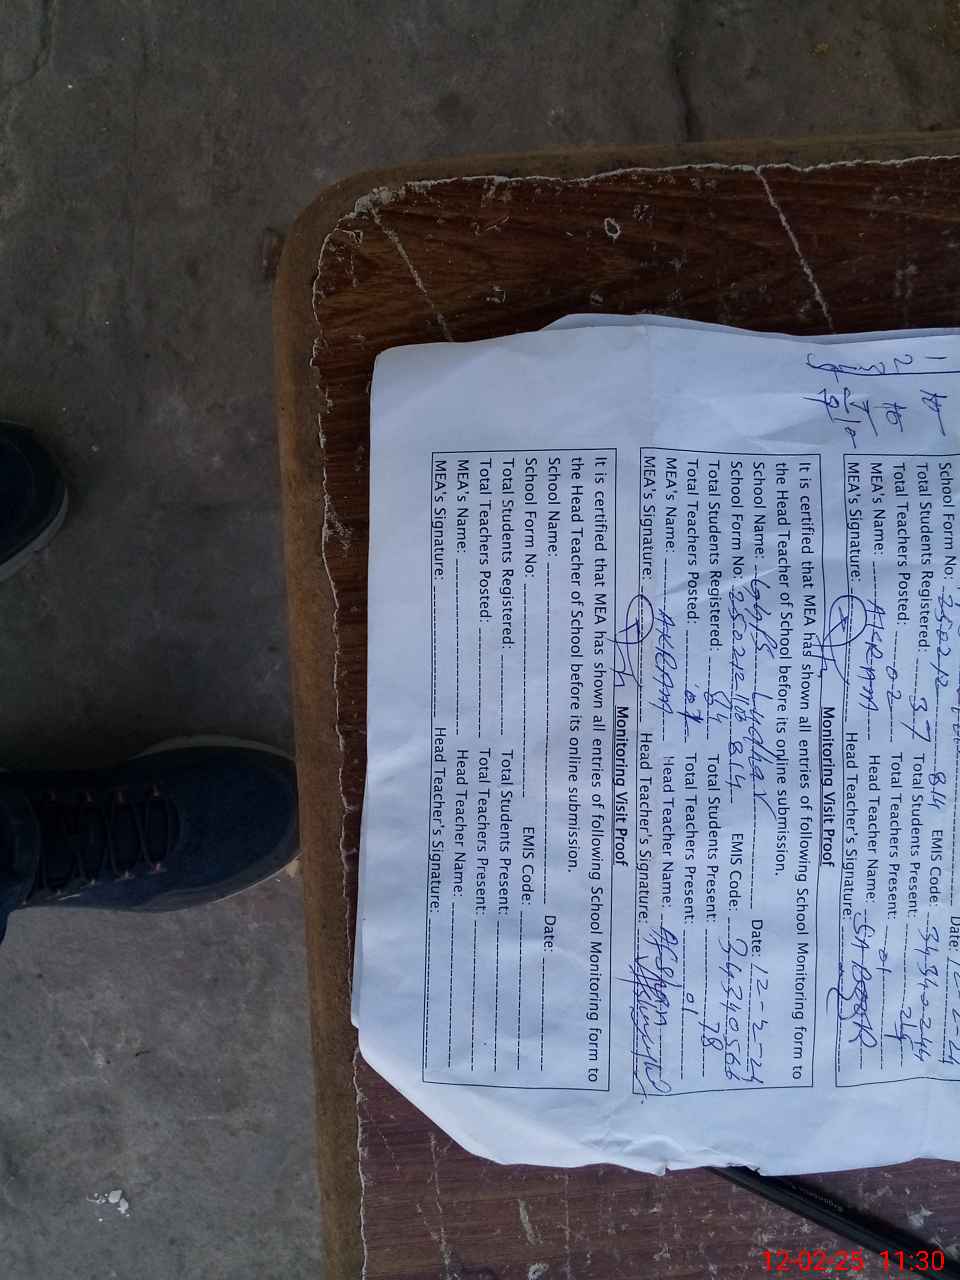 1 10
2 10
School Form No: 250212 814 EMIS Code: 34340244
Total Students Registered: 37 Total Students Present:
Total Teachers Posted: 02 Total Teachers Present: 01
MEA's Name: AKRAM Head Teacher Name: SABOOR
MEA's Signature: Head Teacher's Signature:
Monitoring Visit Proof
It is certified that MEA has shown all entries of following School Monitoring form to
the Head Teacher of School before its online submission.
School Name: GGPS Ludhar Date: 12-2-24
School Form No: 250212 814 EMIS Code: 34340566
Total Students Registered: 84 Total Students Present: 78
Total Teachers Posted: Total Teachers Present: 01
MEA's Name: AKRAM Head Teacher Name: Afshan
MEA's Signature: Head Teacher's Signature:
Monitoring Visit Proof
It is certified that MEA has shown all entries of following School Monitoring form to
the Head Teacher of School before its online submission.
School Name: Date:
School Form No: EMIS Code:
Total Students Registered: Total Students Present:
Total Teachers Posted: Total Teachers Present:
MEA's Name: Head Teacher Name:
MEA's Signature: Head Teacher's Signature:
12-02-25 11:30